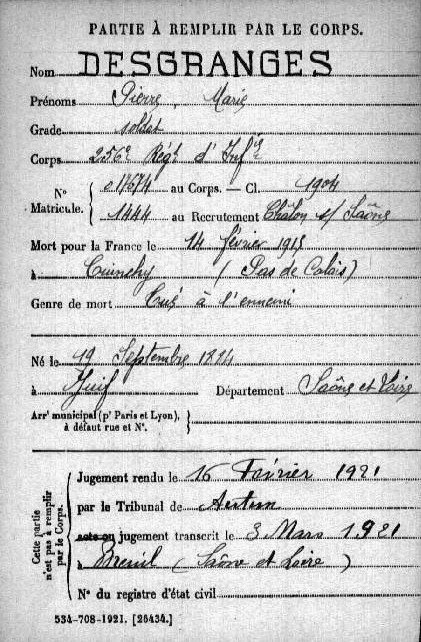 PARTIE À REMPLIR PAR LE CORPS.
Nom DESGRANGES
Prénoms Pierre, Marie
Grade soldat
Corps 256e Régt d'Infie
N° Matricule. 017674 au Corps. — Cl. 1904
1444 au Recrutement Châlon s/ Saône
Mort pour la France le 14 février 1915
à Cuinchy (Pas de Calais)
Genre de mort Tué à l'ennemi
Né le 19 Septembre 1884
à Juif Département Saône et Loire
Arrt municipal (pr Paris et Lyon),
à défaut rue et N°.
Cette partie n'est pas à remplir par le Corps.
Jugement rendu le 16 Février 1921
par le Tribunal de Autun
acte ou jugement transcrit le 3 Mars 1921
à Breuil (Saône et Loire)
N° du registre d'état civil
534-708-1921. [26434.]